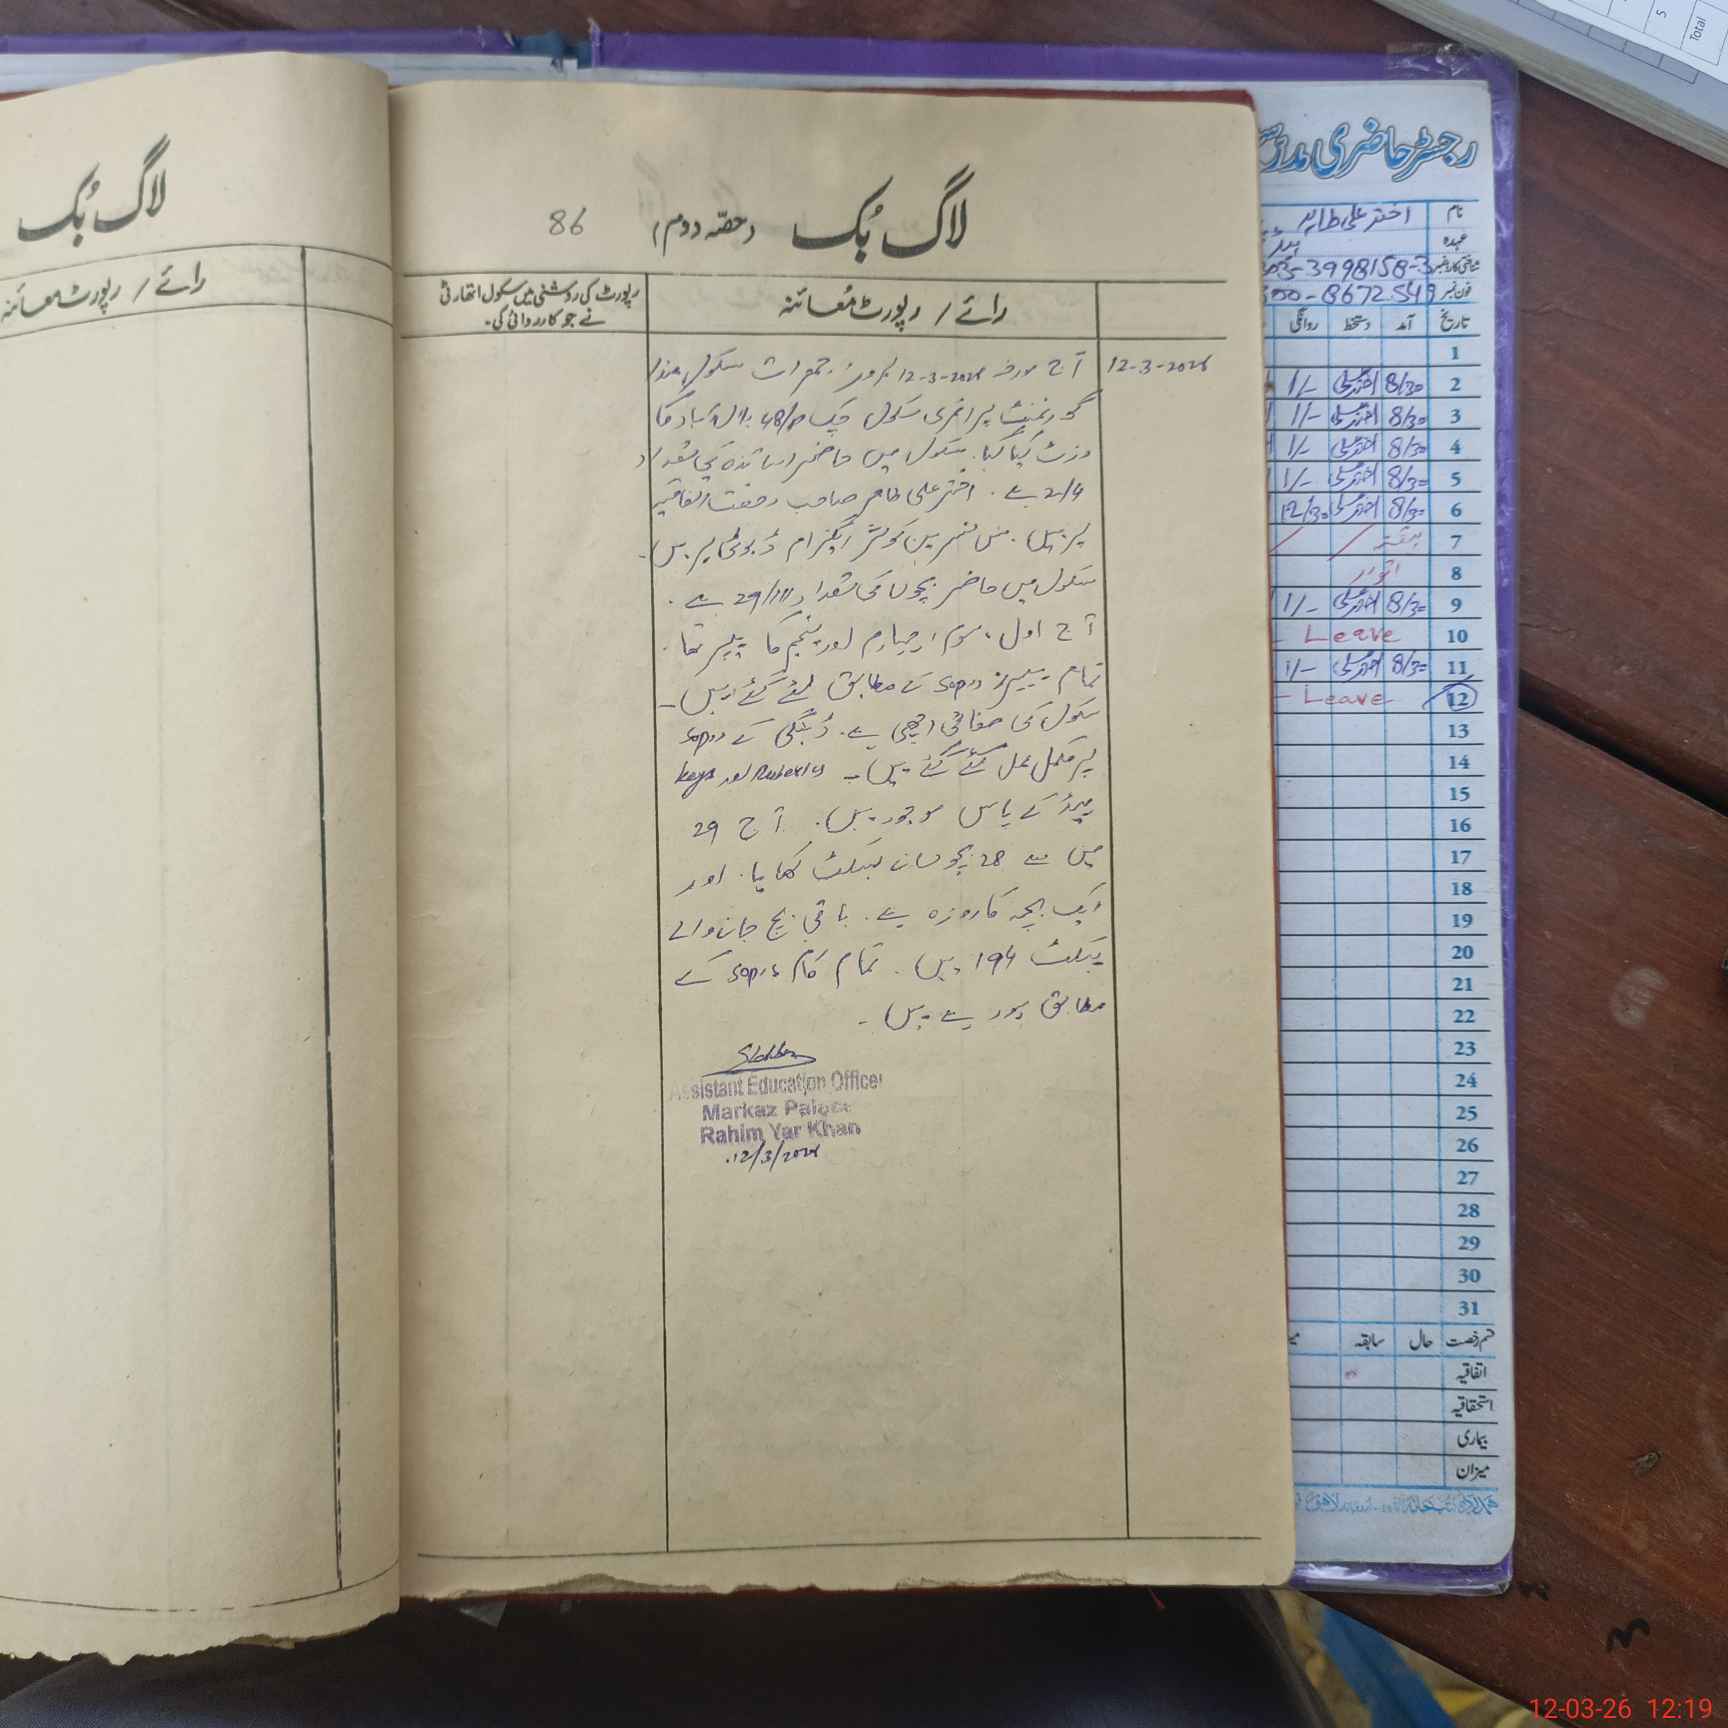 لاگ بُک
رائے / رپورٹ معائنہ
لاگ بُک (حصّہ دوم) 86
رائے / رپورٹ معائنہ
رپورٹ کی روشنی میں سکول اتھارٹی
نے جو کارروائی کی۔
12-3-2026
آج مورخہ 12-3-2026 بروز جمعرات سکول ہذا
گورنمنٹ پرائمری سکول چک 48/P کا
وزٹ کیا گیا۔ سکول میں حاضر اساتذہ کی تعداد
2/4 ہے۔ اختر علی طاہر صاحب رخصت اتفاقیہ
پر ہیں۔ مس نسرین کوثر ایگزام ڈیوٹی پر ہیں۔
سکول میں حاضر بچوں کی تعداد 29/111 ہے۔
آج اول، سوم، چہارم اور پنجم کا پیپر تھا۔
تمام پیپرز SOPs کے مطابق لئے گئے ہیں۔
سکول کی صفائی اچھی ہے۔ ڈینگی کے SOPs
پر مکمل عمل کئے گئے ہیں۔ Rubrics اور keys
ہیڈ کے پاس موجود ہیں۔ آج 29
میں سے 28 بچوں نے بسکٹ کھایا۔ اور
ایک بچہ کا روزہ ہے۔ باقی بچ جانے والے
پیکٹ 194 ہیں۔ تمام کام SOPs کے
مطابق ہو رہے ہیں۔
Assistant Education Officer
Markaz
Rahim Yar Khan
12/3/2026
رجسٹر حاضری
نام اختر علی طاہر
عہدہ
شناختی کارڈ نمبر 3998158-3
فون نمبر 8672549
تاریخ آمد دستخط روانگی
1
2 8/30 1/-
3 8/30 1/-
4 8/30 1/-
5 8/30 1/-
6 8/30 12/30
7 ہفتہ
8 اتوار
9 8/30 1/-
10 Leave
11 8/30 1/-
12 Leave
13
14
15
16
17
18
19
20
21
22
23
24
25
26
27
28
29
30
31
قسم رخصت حال سابقہ
اتفاقیہ
استحقاقیہ
بیماری
میزان
5
Total
12-03-26 12:19